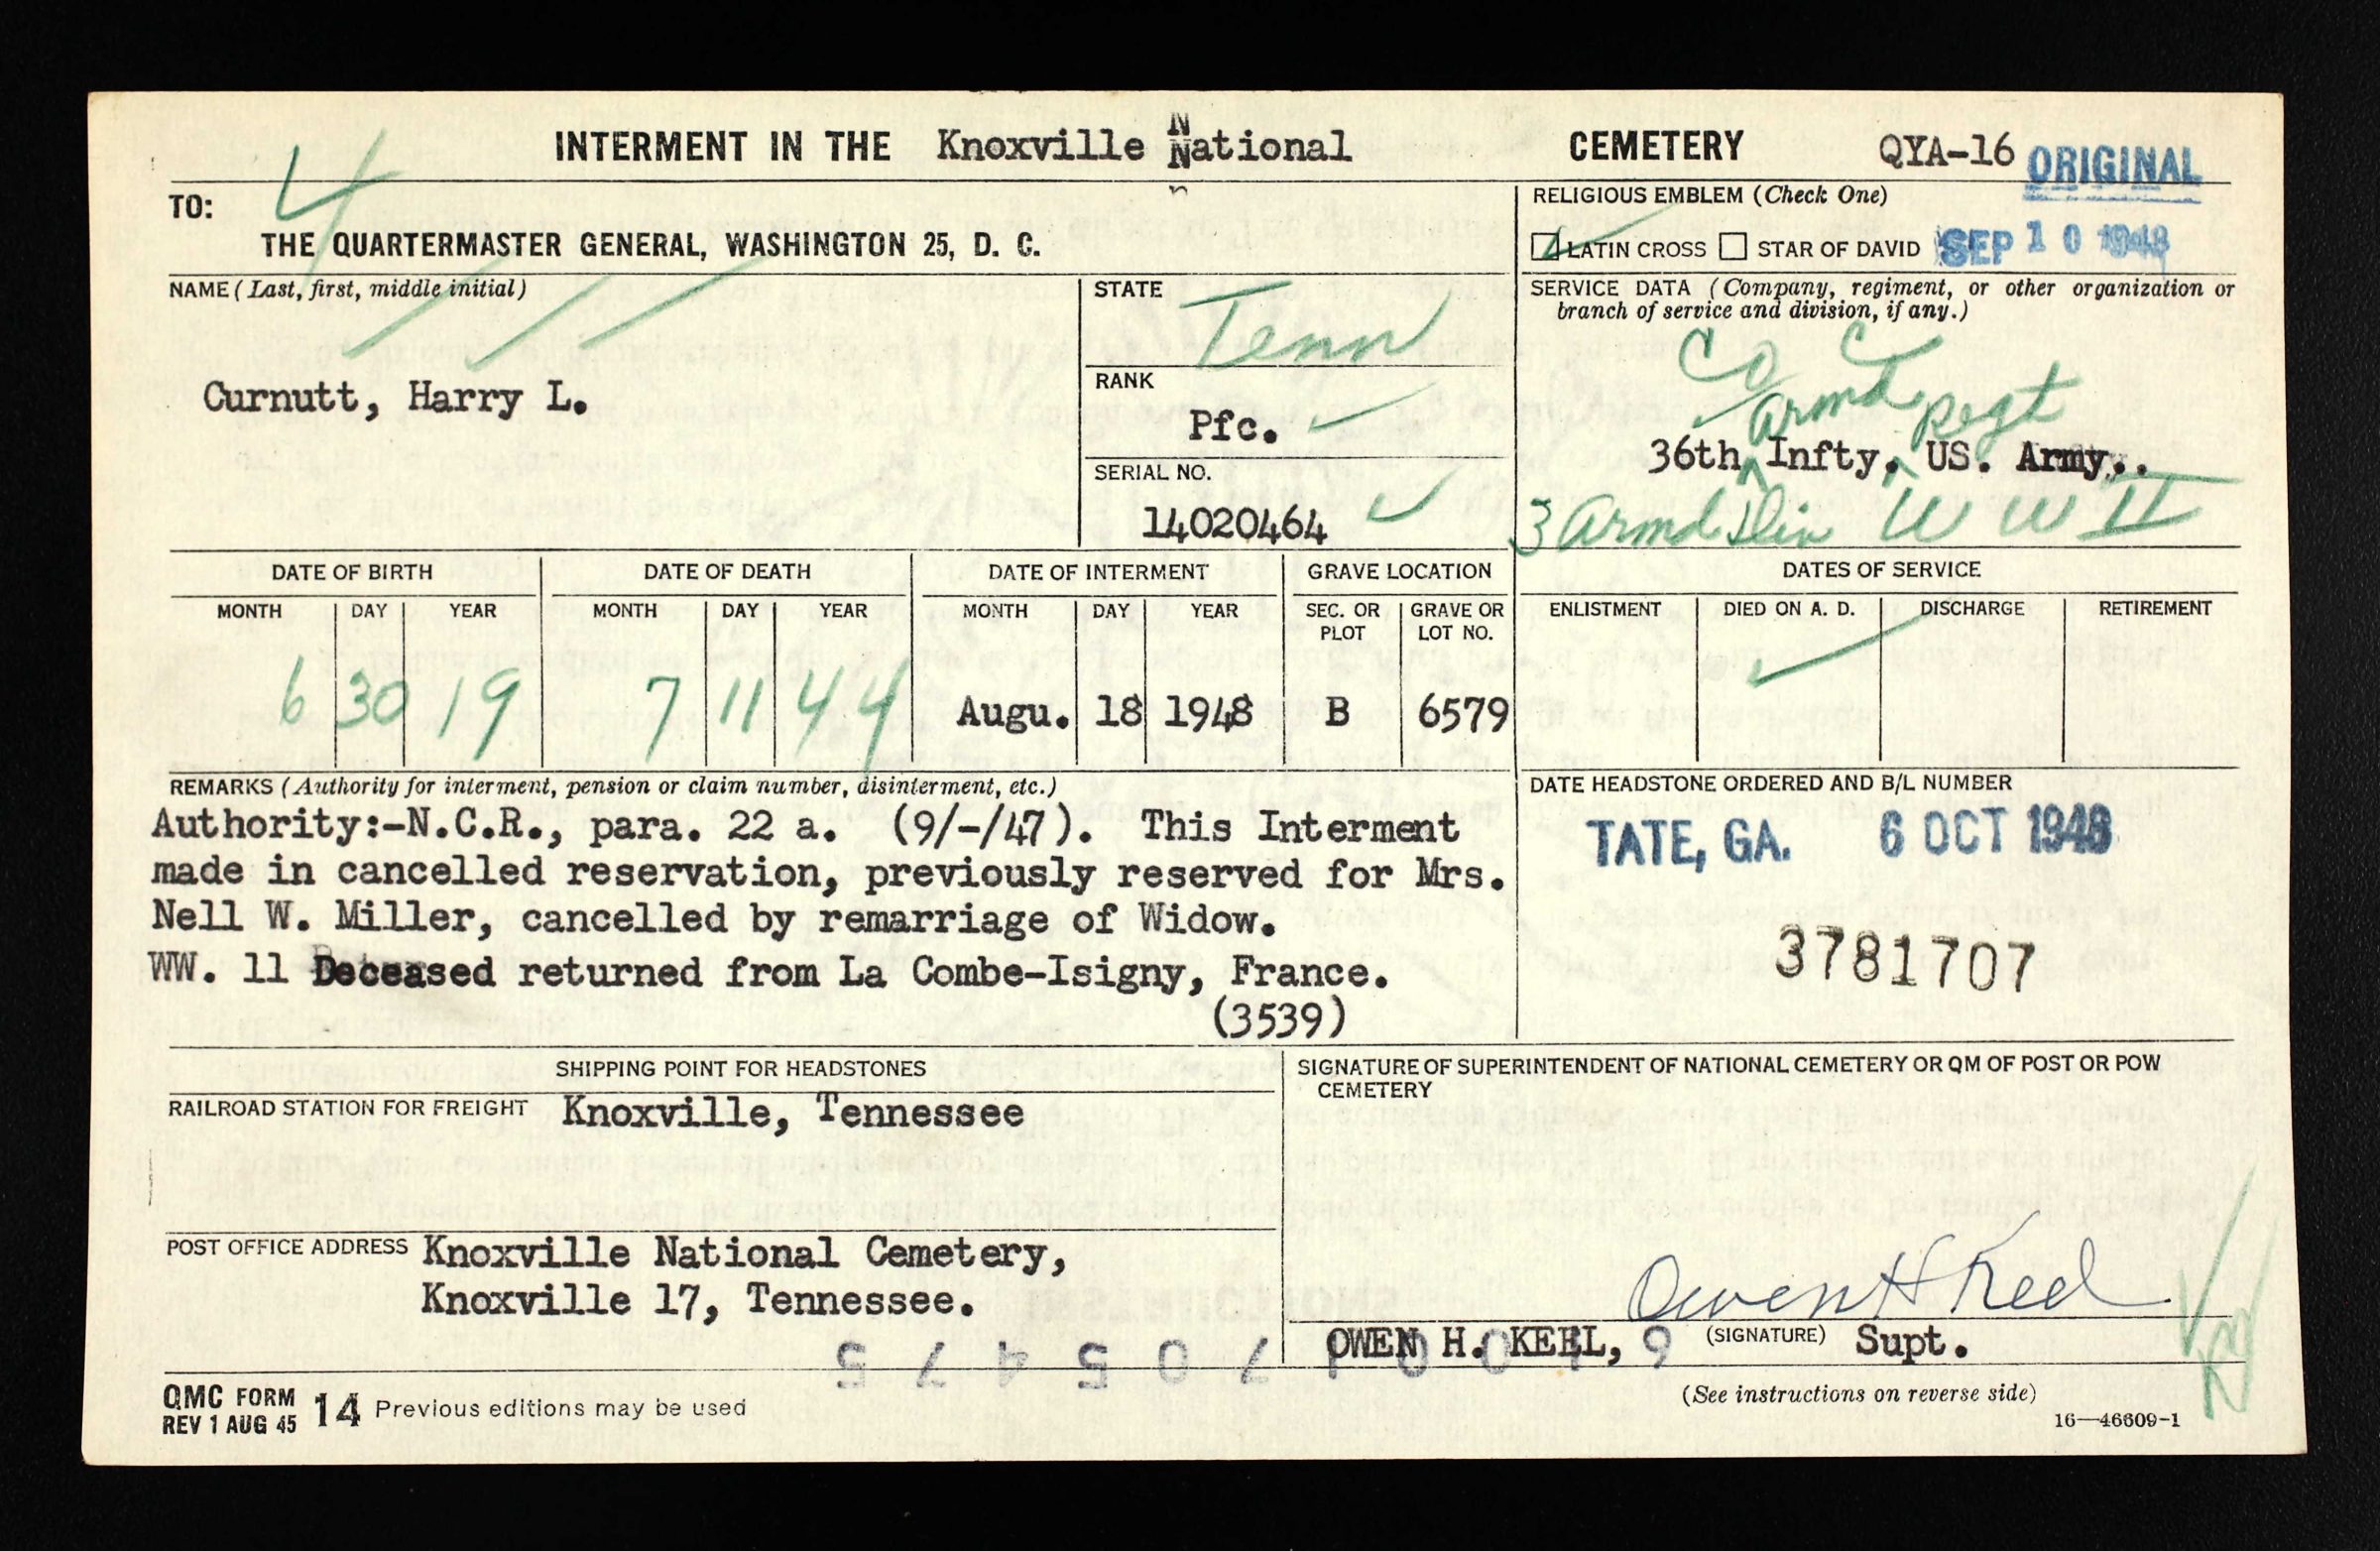 INTERMENT IN THE Knoxville National CEMETERY QYA-16 ORIGINAL
TO:
THE QUARTERMASTER GENERAL, WASHINGTON 25, D. C.
RELIGIOUS EMBLEM (Check One)
LATIN CROSS STAR OF DAVID SEP 10 1948
NAME (Last, first, middle initial)
Curnutt, Harry L.
STATE
Tenn
RANK
Pfc.
SERIAL NO.
14020464
SERVICE DATA (Company, regiment, or other organization or
branch of service and division, if any.)
Co C
Armd Regt
36th Infty. US. Army..
3 Armd Div W W II
DATE OF BIRTH DATE OF DEATH DATE OF INTERMENT GRAVE LOCATION DATES OF SERVICE
MONTH DAY YEAR MONTH DAY YEAR MONTH DAY YEAR SEC. OR PLOT GRAVE OR LOT NO. ENLISTMENT DIED ON A. D. DISCHARGE RETIREMENT
6 30 19 7 11 44 Augu. 18 1948 B 6579
REMARKS (Authority for interment, pension or claim number, disinterment, etc.)
Authority:-N.C.R., para. 22 a. (9/-/47). This Interment
made in cancelled reservation, previously reserved for Mrs.
Nell W. Miller, cancelled by remarriage of Widow.
WW. 11 Deceased returned from La Combe-Isigny, France.
(3539)
DATE HEADSTONE ORDERED AND B/L NUMBER
TATE, GA. 6 OCT 1948
3781707
SHIPPING POINT FOR HEADSTONES
RAILROAD STATION FOR FREIGHT Knoxville, Tennessee
POST OFFICE ADDRESS Knoxville National Cemetery,
Knoxville 17, Tennessee.
SIGNATURE OF SUPERINTENDENT OF NATIONAL CEMETERY OR QM OF POST OR POW
CEMETERY
Owen H Keel
OWEN H. KEEL, (SIGNATURE) Supt.
QMC FORM 14 Previous editions may be used
REV 1 AUG 45
(See instructions on reverse side)
16—46609-1